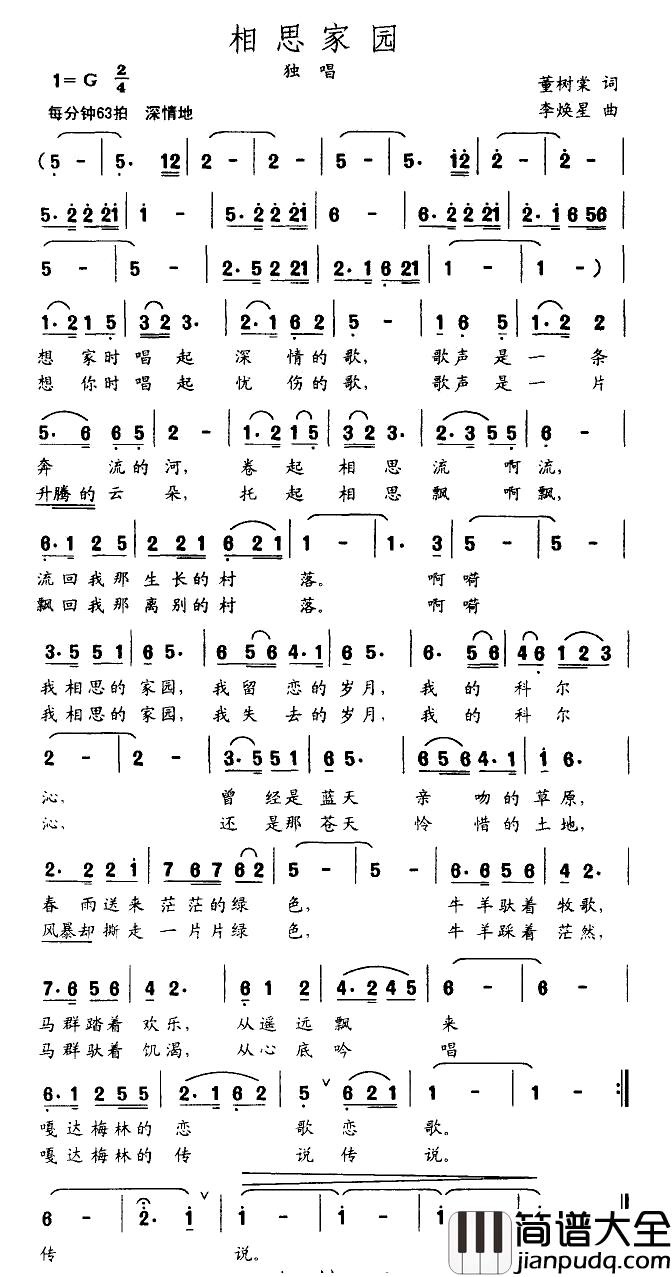 相思家园
独唱
1=G 2/4
董树棠 词
每分钟63拍 深情地
李焕星 曲
(5 - | 5· 12 | 2 - | 2 - | 5 - | 5· 12 | 2 - | 2 - |
5·2 2 21 | 1 - | 5·2 2 21 | 6 - | 6·2 2 21 | 2·1 6 56 |
5 - | 5 - | 2·5 2 21 | 2·1 6 21 | 1 - | 1 - ) |
1·2 1 5 | 3 2 3· | 2·1 6 2 | 5 - | 1 6 5 | 1·2 2 |
想家时唱起 深情的歌, 歌声是一条
想你时唱起 忧伤的歌, 歌声是一片
5· 6 6 5 | 2 - | 1·2 1 5 | 3 2 3· | 2·3 5 5 | 6 - |
奔流的河, 卷起相思流啊流,
升腾的云朵, 托起相思飘啊飘,
6·1 2 5 | 2 2 1 6 2 1 | 1 - | 1· 3 | 5 - | 5 - |
流回我那生长的村落。 啊嗬
飘回我那离别的村落。 啊嗬
3·5 5 1 | 6 5· | 6 5 6 4·1 | 6 5· | 6· 5 6 | 4 6 1 2 3 |
我相思的家园, 我留恋的岁月, 我的科尔
我相思的家园, 我失去的岁月, 我的科尔
2 - | 2 - | 3·5 5 1 | 6 5· | 6 5 6 4·1 | 1 6· |
沁, 曾经是蓝天亲吻的草原,
沁, 还是那苍天怜惜的土地,
2· 2 2 1 | 7 6 7 6 2 | 5 - | 5 - | 6·6 5 6 | 2 2· |
春雨送来茫茫的绿色, 牛羊驮着牧歌,
风暴却撕走一片片绿色, 牛羊踩着茫然,
7·6 5 6 | 4 2· | 6 1 2 | 4·2 4 5 | 6 - | 6 - |
马群踏着欢乐, 从遥远飘来
马群驮着饥渴, 从心底吟唱
6·1 2 5 5 | 2·1 6 2 | 5 ∨ 6 2 1 | 1 - | 1 - :‖
嘎达梅林的恋歌恋歌。
嘎达梅林的传说传说。
6 - | 2· 1 ∨ | 1 - | 1 - | 1 - | 1 - ‖
传说。
简谱大全
jianpudq.com